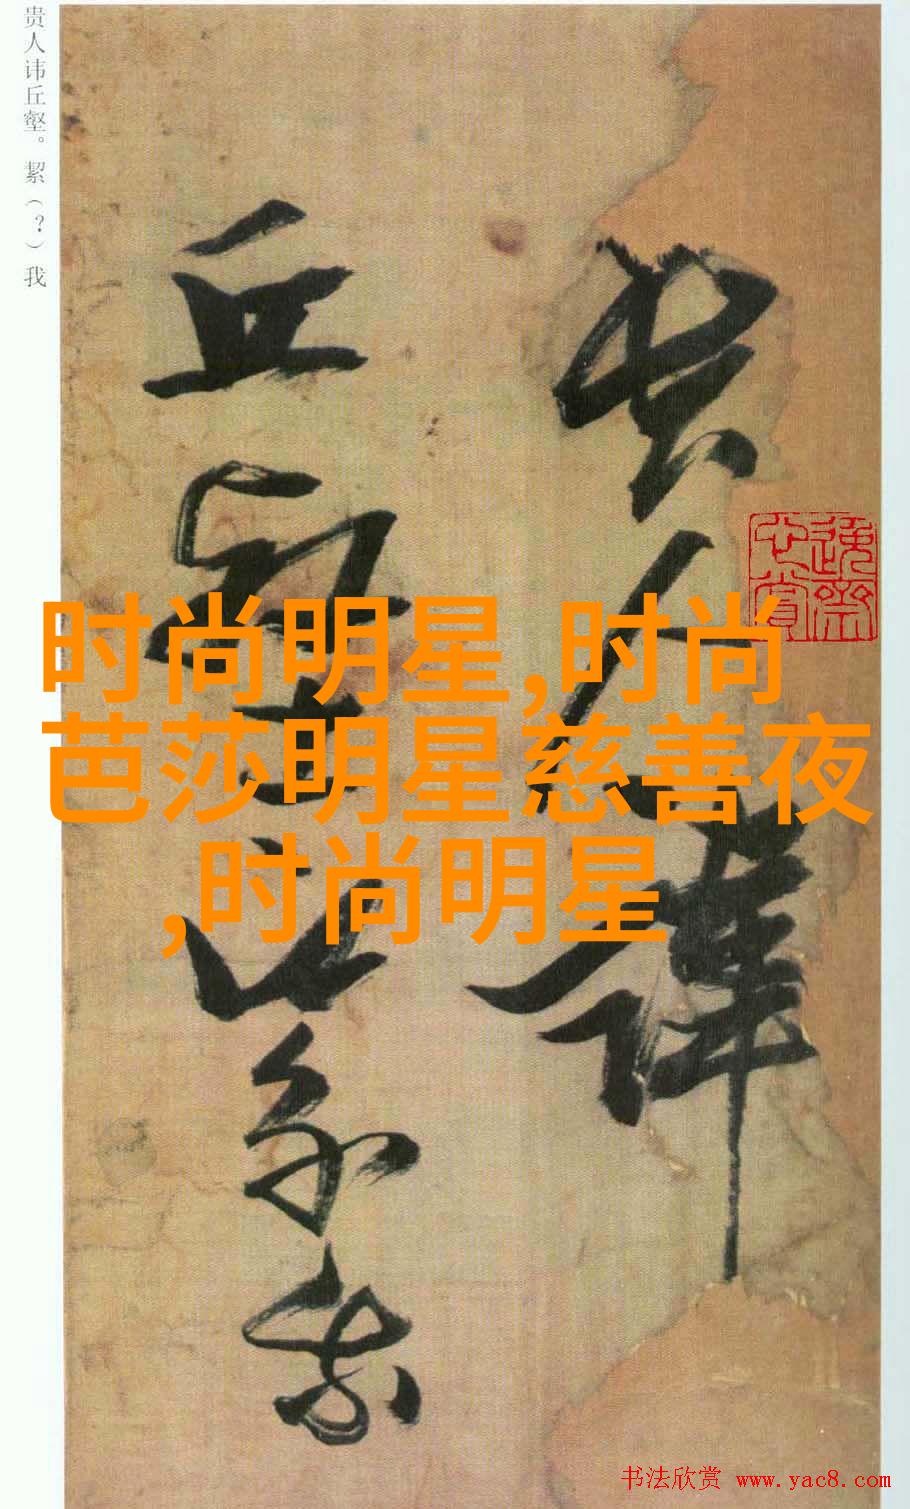 贵人讳丘壑。絜（？）我
贵人讳
丘壑絜我
时尚明星,时尚
芭莎明星慈善夜
,时尚明星
书法欣赏 www.yac8.com